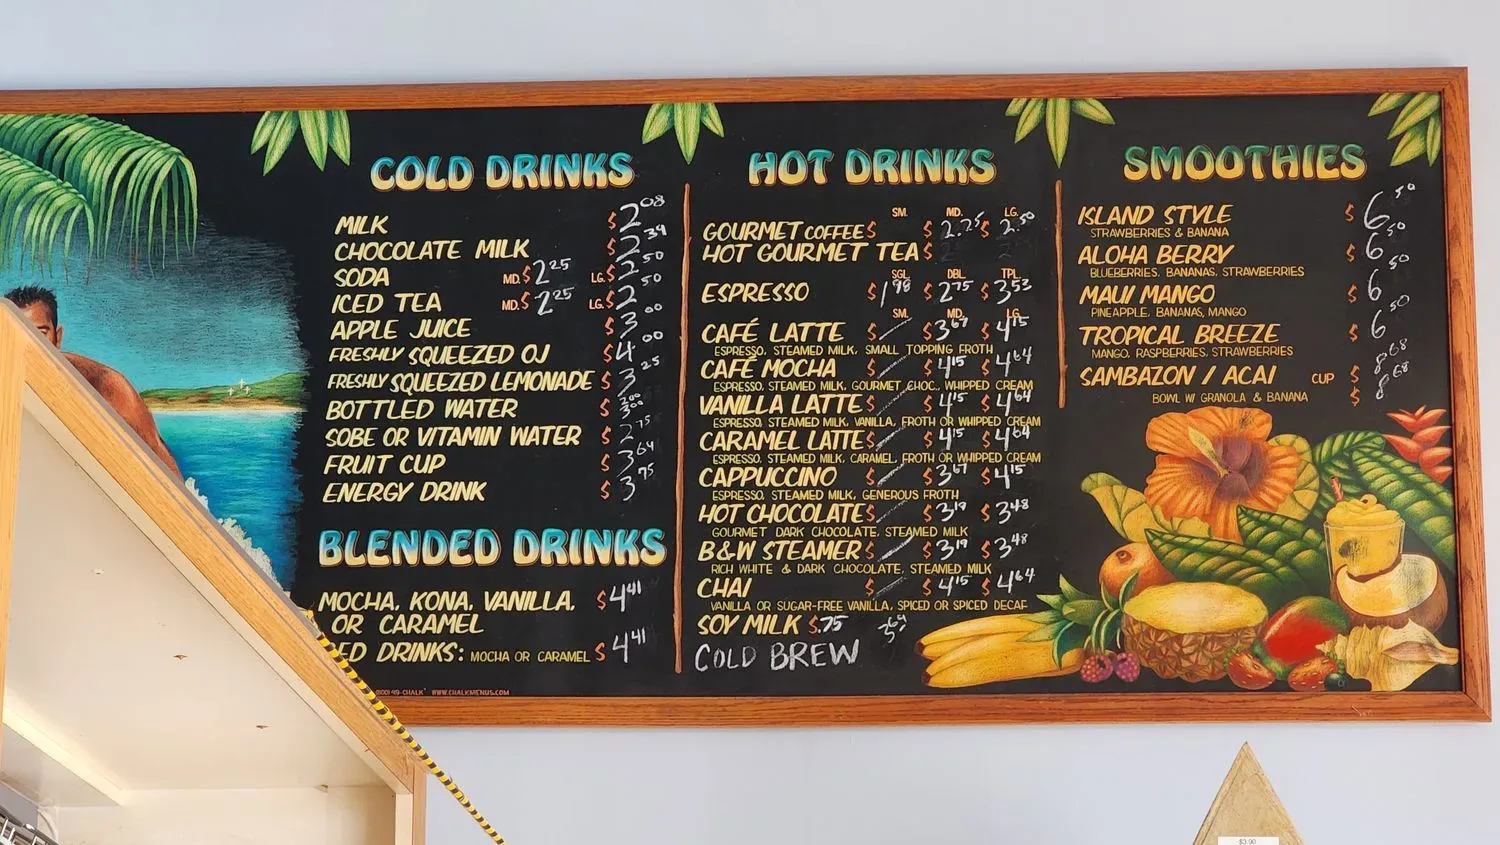 COLD DRINKS
MILK $2.08
CHOCOLATE MILK $2.39
SODA MD. $2.25 LG. $2.50
ICED TEA MD. $2.25 LG. $2.50
APPLE JUICE $3.00
FRESHLY SQUEEZED OJ $4.00
FRESHLY SQUEEZED LEMONADE $3.25
BOTTLED WATER $
SOBE OR VITAMIN WATER $2.75
FRUIT CUP $3.64
ENERGY DRINK $3.75
BLENDED DRINKS
MOCHA, KONA, VANILLA, $4.41
OR CARAMEL
ED DRINKS: MOCHA OR CARAMEL $4.41
WWW.CHALKMENUS.COM
HOT DRINKS
SM. MD. LG.
GOURMET COFFEE $ $2.25 $2.50
HOT GOURMET TEA $
SGL. DBL. TPL.
ESPRESSO $1.98 $2.75 $3.53
SM. MD. LG.
CAFÉ LATTE $ $3.67 $4.15
ESPRESSO, STEAMED MILK, SMALL TOPPING FROTH
CAFÉ MOCHA $ $4.15 $4.64
ESPRESSO, STEAMED MILK, GOURMET CHOC., WHIPPED CREAM
VANILLA LATTE $ $4.15 $4.64
ESPRESSO, STEAMED MILK, VANILLA, FROTH OR WHIPPED CREAM
CARAMEL LATTE $ $4.15 $4.64
ESPRESSO, STEAMED MILK, CARAMEL, FROTH OR WHIPPED CREAM
CAPPUCCINO $ $3.67 $4.15
ESPRESSO, STEAMED MILK, GENEROUS FROTH
HOT CHOCOLATE $ $3.19 $3.48
GOURMET DARK CHOCOLATE, STEAMED MILK
B&W STEAMER $ $3.19 $3.48
RICH WHITE & DARK CHOCOLATE, STEAMED MILK
CHAI $ $4.15 $4.64
VANILLA OR SUGAR-FREE VANILLA, SPICED OR SPICED DECAF
SOY MILK $.75
COLD BREW
SMOOTHIES
ISLAND STYLE $6.50
STRAWBERRIES & BANANA
ALOHA BERRY $6.50
BLUEBERRIES, BANANAS, STRAWBERRIES
MAUI MANGO $6.50
PINEAPPLE, BANANAS, MANGO
TROPICAL BREEZE $6.50
MANGO, RASPBERRIES, STRAWBERRIES
SAMBAZON / ACAI CUP $8.68
BOWL W/ GRANOLA & BANANA $8.68
$3.90